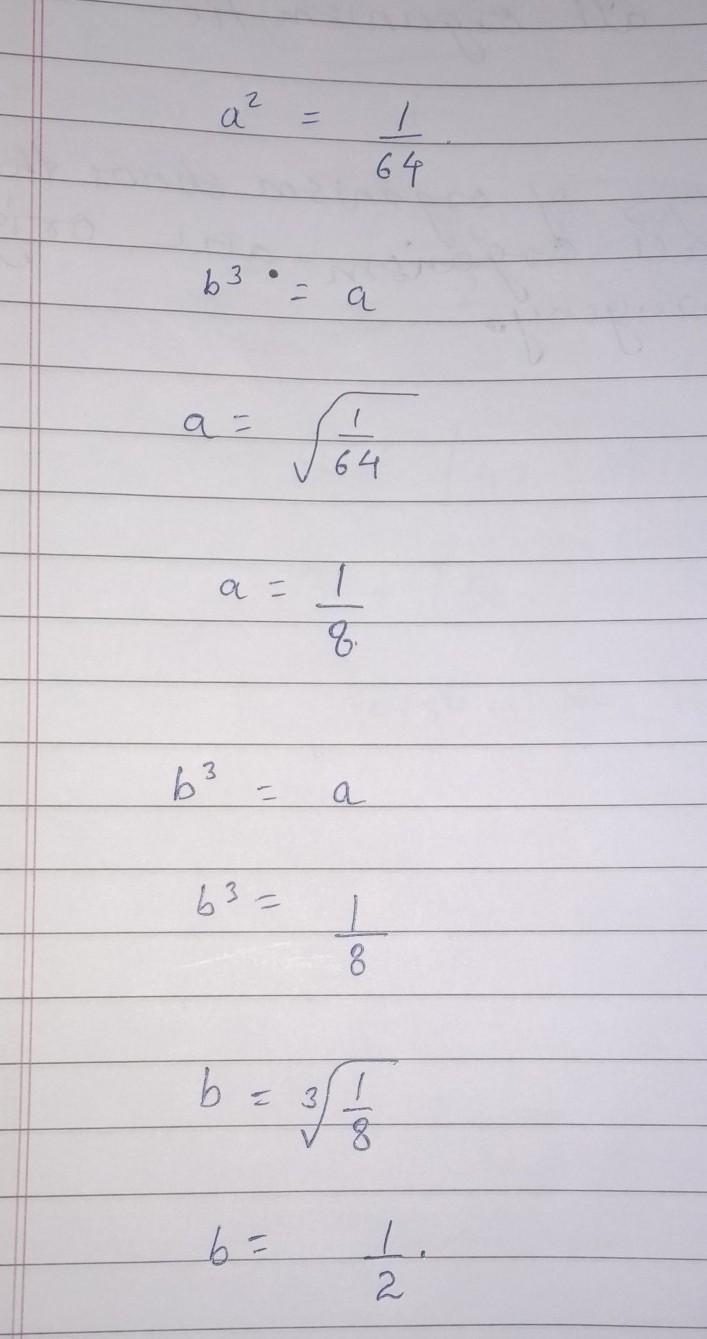 a² = 1/64
b³ = a
a = √(1/64)
a = 1/8
b³ = a
b³ = 1/8
b = ³√(1/8)
b = 1/2.